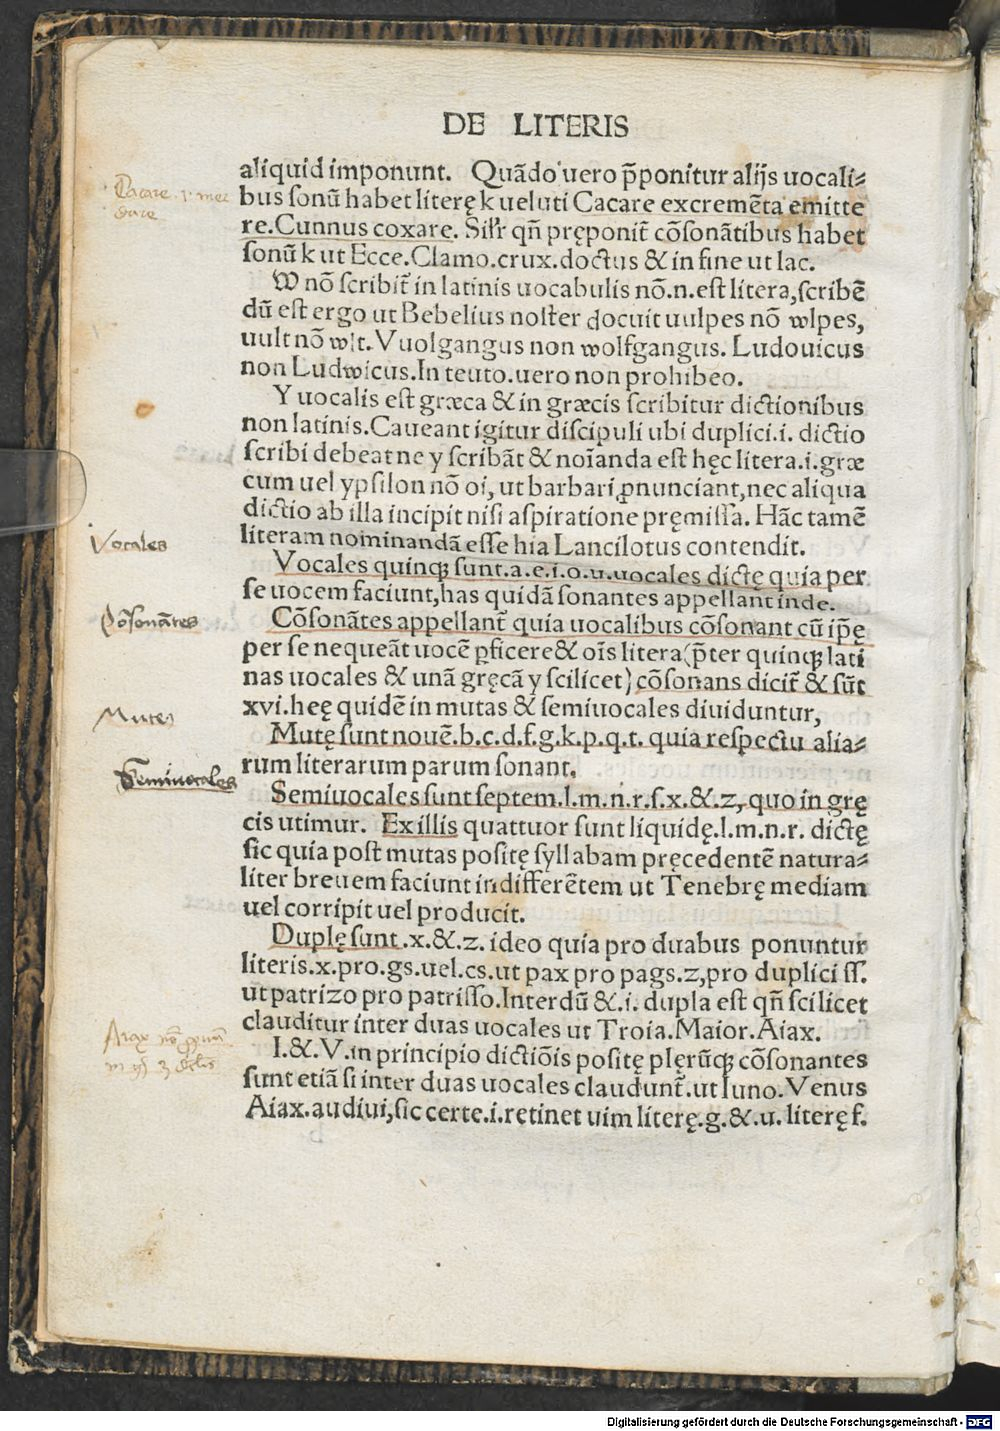 DE LITERIS
aliquid imponunt. Quãdo uero p̃ponitur alijs uocali⸗
bus sonũ habet literę k ueluti Cacare excremẽta emitte
re.Cunnus coxare. Sil'r qñ pręponit̃ cõsonãtibus habet
sonũ k ut Ecce.Clamo.crux.doctus & in fine ut lac.
W nõ scribit̃ in latinis uocabulis nõ.n.est litera,scribẽ
dũ est ergo ut Bebelius noster docuit uulpes nõ wlpes,
uult nõ wlt.Vuolgangus non wolfgangus. Ludouicus
non Ludwicus.In teuto.uero non prohibeo.
Y uocalis est græca & in græcis scribitur dictionibus
non latinis.Caueant igitur discipuli ubi duplici.i. dictio
scribi debeat ne y scribãt & noĩanda est hęc litera.i.græ
cum uel ypsilon nõ oi, ut barbari ꝓnunciant,nec aliqua
dictio ab illa incipit nisi aspiratione pręmissa. Hãc tamẽ
literam nominandã esse hia Lancilotus contendit.
Vocales
Vocales quinqꝫ sunt.a.e.i.o.u.uocales dictę quia per
se uocem faciunt,has quidã sonantes appellant inde.
Cõsonãtes
Cõsonãtes appellant̃ quia uocalibus cõsonant cũ ip̃ę
per se nequeãt uocẽ ꝑficere & oĩs litera (p̃ter quinqꝫ lati
nas uocales & unã gręcã y scilicet) cõsonans dicit̃ & sũt
xvi.heę quidẽ in mutas & semiuocales diuiduntur,
Mutę
Mutę sunt nouẽ.b.c.d.f.g.k.p.q.t. quia respectu alia⸗
rum literarum parum sonant.
Semiuocales
Semiuocales sunt septem.l.m.n.r.s.x.&.z, quo in grę
cis utimur. Ex illis quattuor sunt liquidę.l.m.n.r. dictę
sic quia post mutas positę syllabam pręcedentẽ natura⸗
liter breuem faciunt indifferẽtem ut Tenebrę mediam
uel corripit uel producit.
Duplę sunt.x.&.z. ideo quia pro duabus ponuntur
literis.x.pro.gs.uel.cs.ut pax pro pags.z,pro duplici ss.
ut patrizo pro patrisso.Interdũ &.i. dupla est qñ scilicet
clauditur inter duas uocales ut Troia.Maior.Aiax.
I.&.V.in principio dictiõis positę plerũqꝫ cõsonantes
sunt etiã si inter duas uocales claudunt̃.ut Iuno.Venus
Aiax.audiui,sic certe.i.retinet uim literę.g.&.u. literę f.
Digitalisierung gefördert durch die Deutsche Forschungsgemeinschaft - DFG